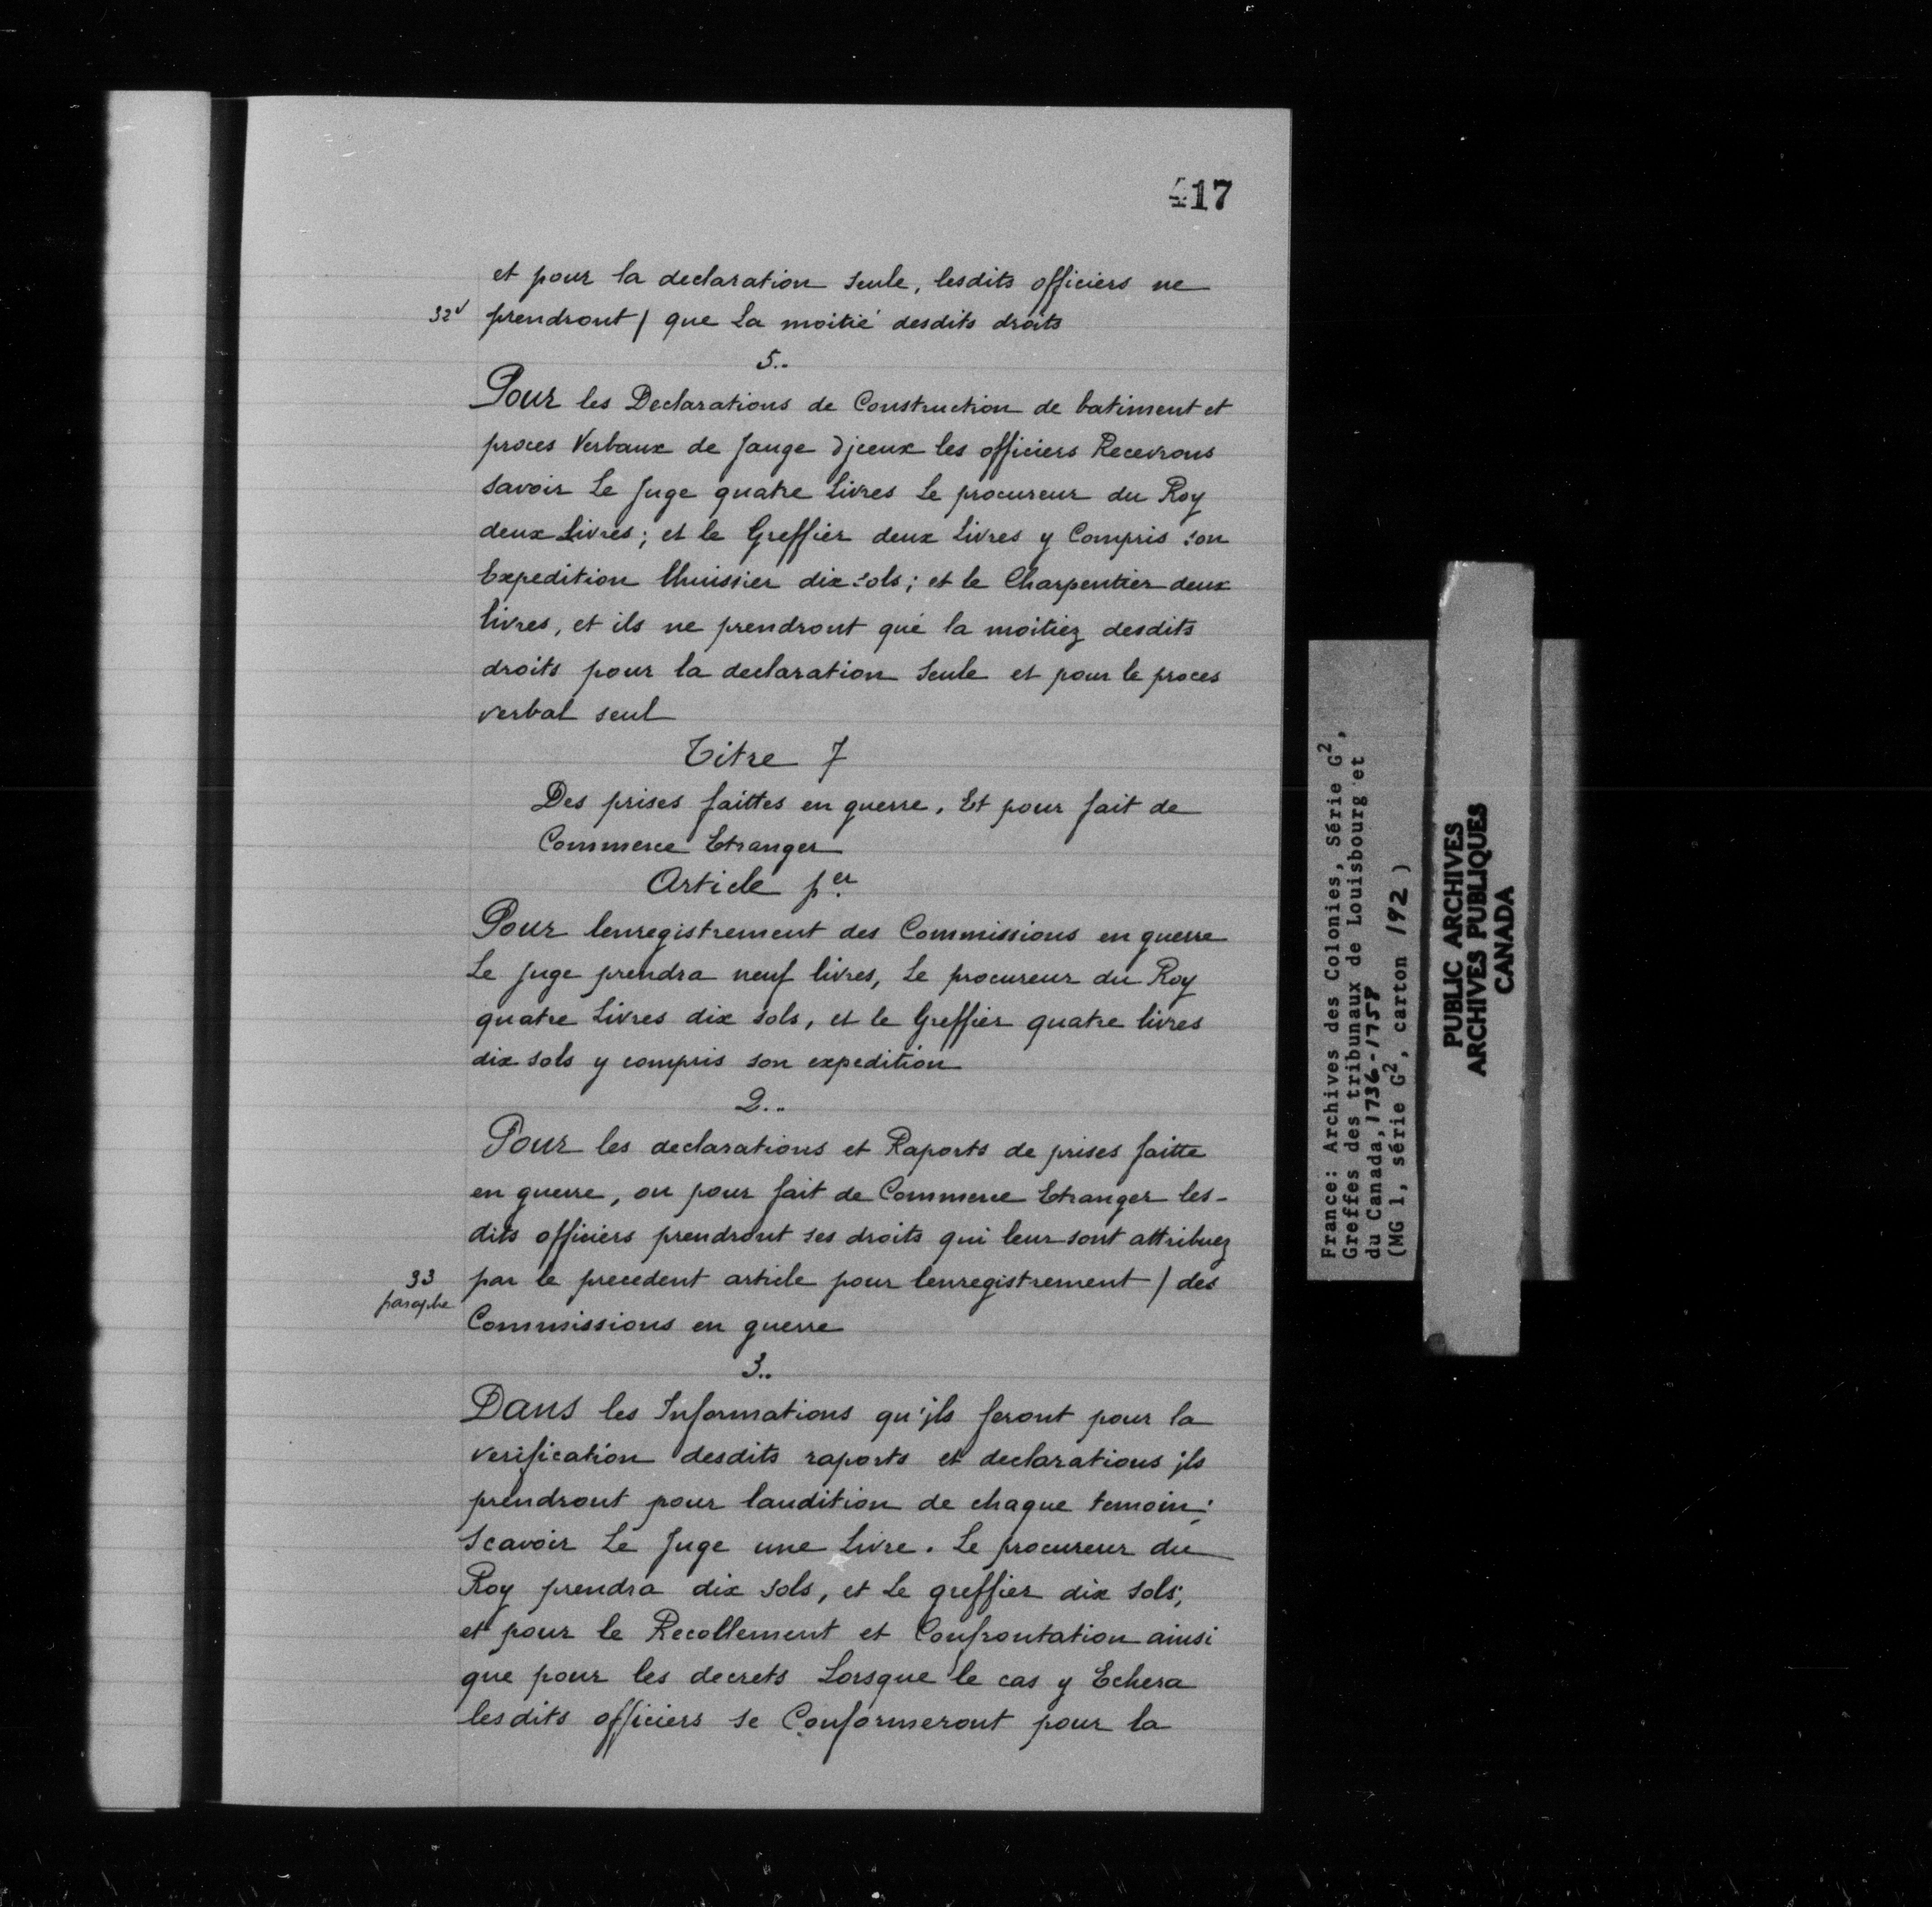 417
et pour la declaration seule, lesdits officiers ne
32v prendront / que La moitié desdits droits
5..
Pour les Declarations de Construction de batiment et
proces Verbaux de Jauge Djceux les officiers Recevrons
savoir Le Juge quatre Livres Le procureur du Roy
deux Livres; et le Greffier deux Livres y Compris son
Expedition lhuissier dix sols; et le Charpentier deux
livres, et ils ne prendront que la moitiez desdits
droits pour la declaration seule et pour le proces
verbal seul
Titre 7
Des prises faittes en guerre. Et pour fait de
Commerce Etranger
Article per
Pour lenregistrement des Commissions en guerre
Le Juge prendra neuf livres, Le procureur du Roy
quatre Livres dix sols, et le Greffier quatre livres
dix sols y compris son expedition
2..
Pour les declarations et Raports de prises faitte
en guerre, ou pour fait de Commerce Etranger les-
dits officiers prendront ses droits qui leur sont attribuez
33 par le precedent article pour lenregistrement / des
paraphe
Commissions en guerre
3..
Dans les Informations qu'jls feront pour la
verification desdits raports et declarations jls
prendront pour laudition de chaque temoin;
Scavoir Le Juge une Livre. Le procureur du
Roy prendra dix sols, et Le greffier dix sols;
et pour le Recollement et Confrontation ainsi
que pour les decrets Lorsque le cas y Echera
lesdits officiers se Conformeront pour la
France: Archives des Colonies, Série G2,
Greffes des tribunaux de Louisbourg et
du Canada, 1736-1758
(MG 1, série G2, carton 192)
PUBLIC ARCHIVES
ARCHIVES PUBLIQUES
CANADA